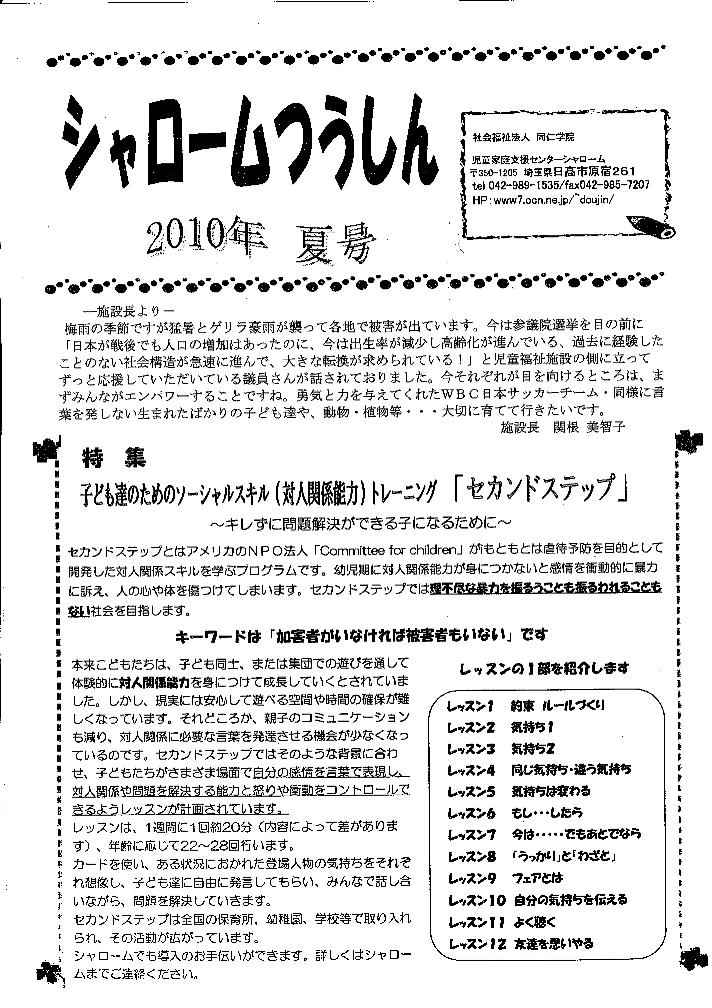 シャロームつうしん
2010年 夏号
社会福祉法人 同仁学院
児童家庭支援センターシャローム
〒350-1205 埼玉県日高市原宿261
tel 042-989-1535/fax042-985-7207
HP:www7.ocn.ne.jp/~doujin/
―施設長より―
梅雨の季節ですが猛暑とゲリラ豪雨が襲って各地で被害が出ています。今は参議院選挙を目の前に
「日本が戦後でも人口の増加はあったのに、今は出生率が減少し高齢化が進んでいる、過去に経験した
ことのない社会構造が急速に進んで、大きな転換が求められている!」と児童福祉施設の側に立って
ずっと応援していただいている議員さんが話されておりました。今それぞれが目を向けるところは、ま
ずみんながエンパワーすることですね。勇気と力を与えてくれたWBC日本サッカーチーム・同様に言
葉を発しない生まれたばかりの子ども達や、動物・植物等・・・大切に育てて行きたいです。
施設長 関根 美智子
特 集
子ども達のためのソーシャルスキル(対人関係能力)トレーニング 「セカンドステップ」
~キレずに問題解決ができる子になるために~
セカンドステップとはアメリカのNPO法人「Committee for children」がもともとは虐待予防を目的として
開発した対人関係スキルを学ぶプログラムです。幼児期に対人関係能力が身につかないと感情を衝動的に暴力
に訴え、人の心や体を傷つけてしまいます。セカンドステップでは理不尽な暴力を振るうことも振るわれることも
ない社会を目指します。
キーワードは「加害者がいなければ被害者もいない」です
本来こどもたちは、子ども同士、または集団での遊びを通して
体験的に対人関係能力を身につけて成長していくとされていま
した。しかし、現実には安心して遊べる空間や時間の確保が難
しくなっています。それどころか、親子のコミュニケーション
も減り、対人関係に必要な言葉を発達させる機会が少なくなっ
ているのです。セカンドステップではそのような背景に合わ
せ、子どもたちがさまざま場面で自分の感情を言葉で表現し、
対人関係や問題を解決する能力と怒りや衝動をコントロールで
きるようレッスンが計画されています。
レッスンは、1週間に1回約20分(内容によって差がありま
す)、年齢に応じて22~28回行います。
カードを使い、ある状況におかれた登場人物の気持ちをそれぞ
れ想像し、子ども達に自由に発言してもらい、みんなで話し合
いながら、問題を解決していきます。
セカンドステップは全国の保育所、幼稚園、学校等で取り入れ
られ、その活動が広がっています。
シャロームでも導入のお手伝いができます。詳しくはシャロー
ムまでご連絡ください。
レッスンの1部を紹介します
レッスン1 約束 ルールづくり
レッスン2 気持ち1
レッスン3 気持ち2
レッスン4 同じ気持ち・違う気持ち
レッスン5 気持ちは変わる
レッスン6 もし・・・したら
レッスン7 今は・・・・・でもあとでなら
レッスン8 「うっかり」と「わざと」
レッスン9 フェアとは
レッスン10 自分の気持ちを伝える
レッスン11 よく聴く
レッスン12 友達を思いやる